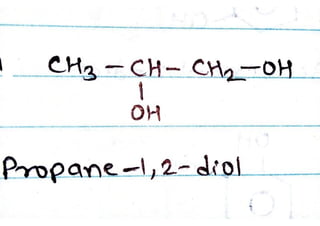 CH3 - CH - CH2 - OH
|
OH
Propane-1,2-diol